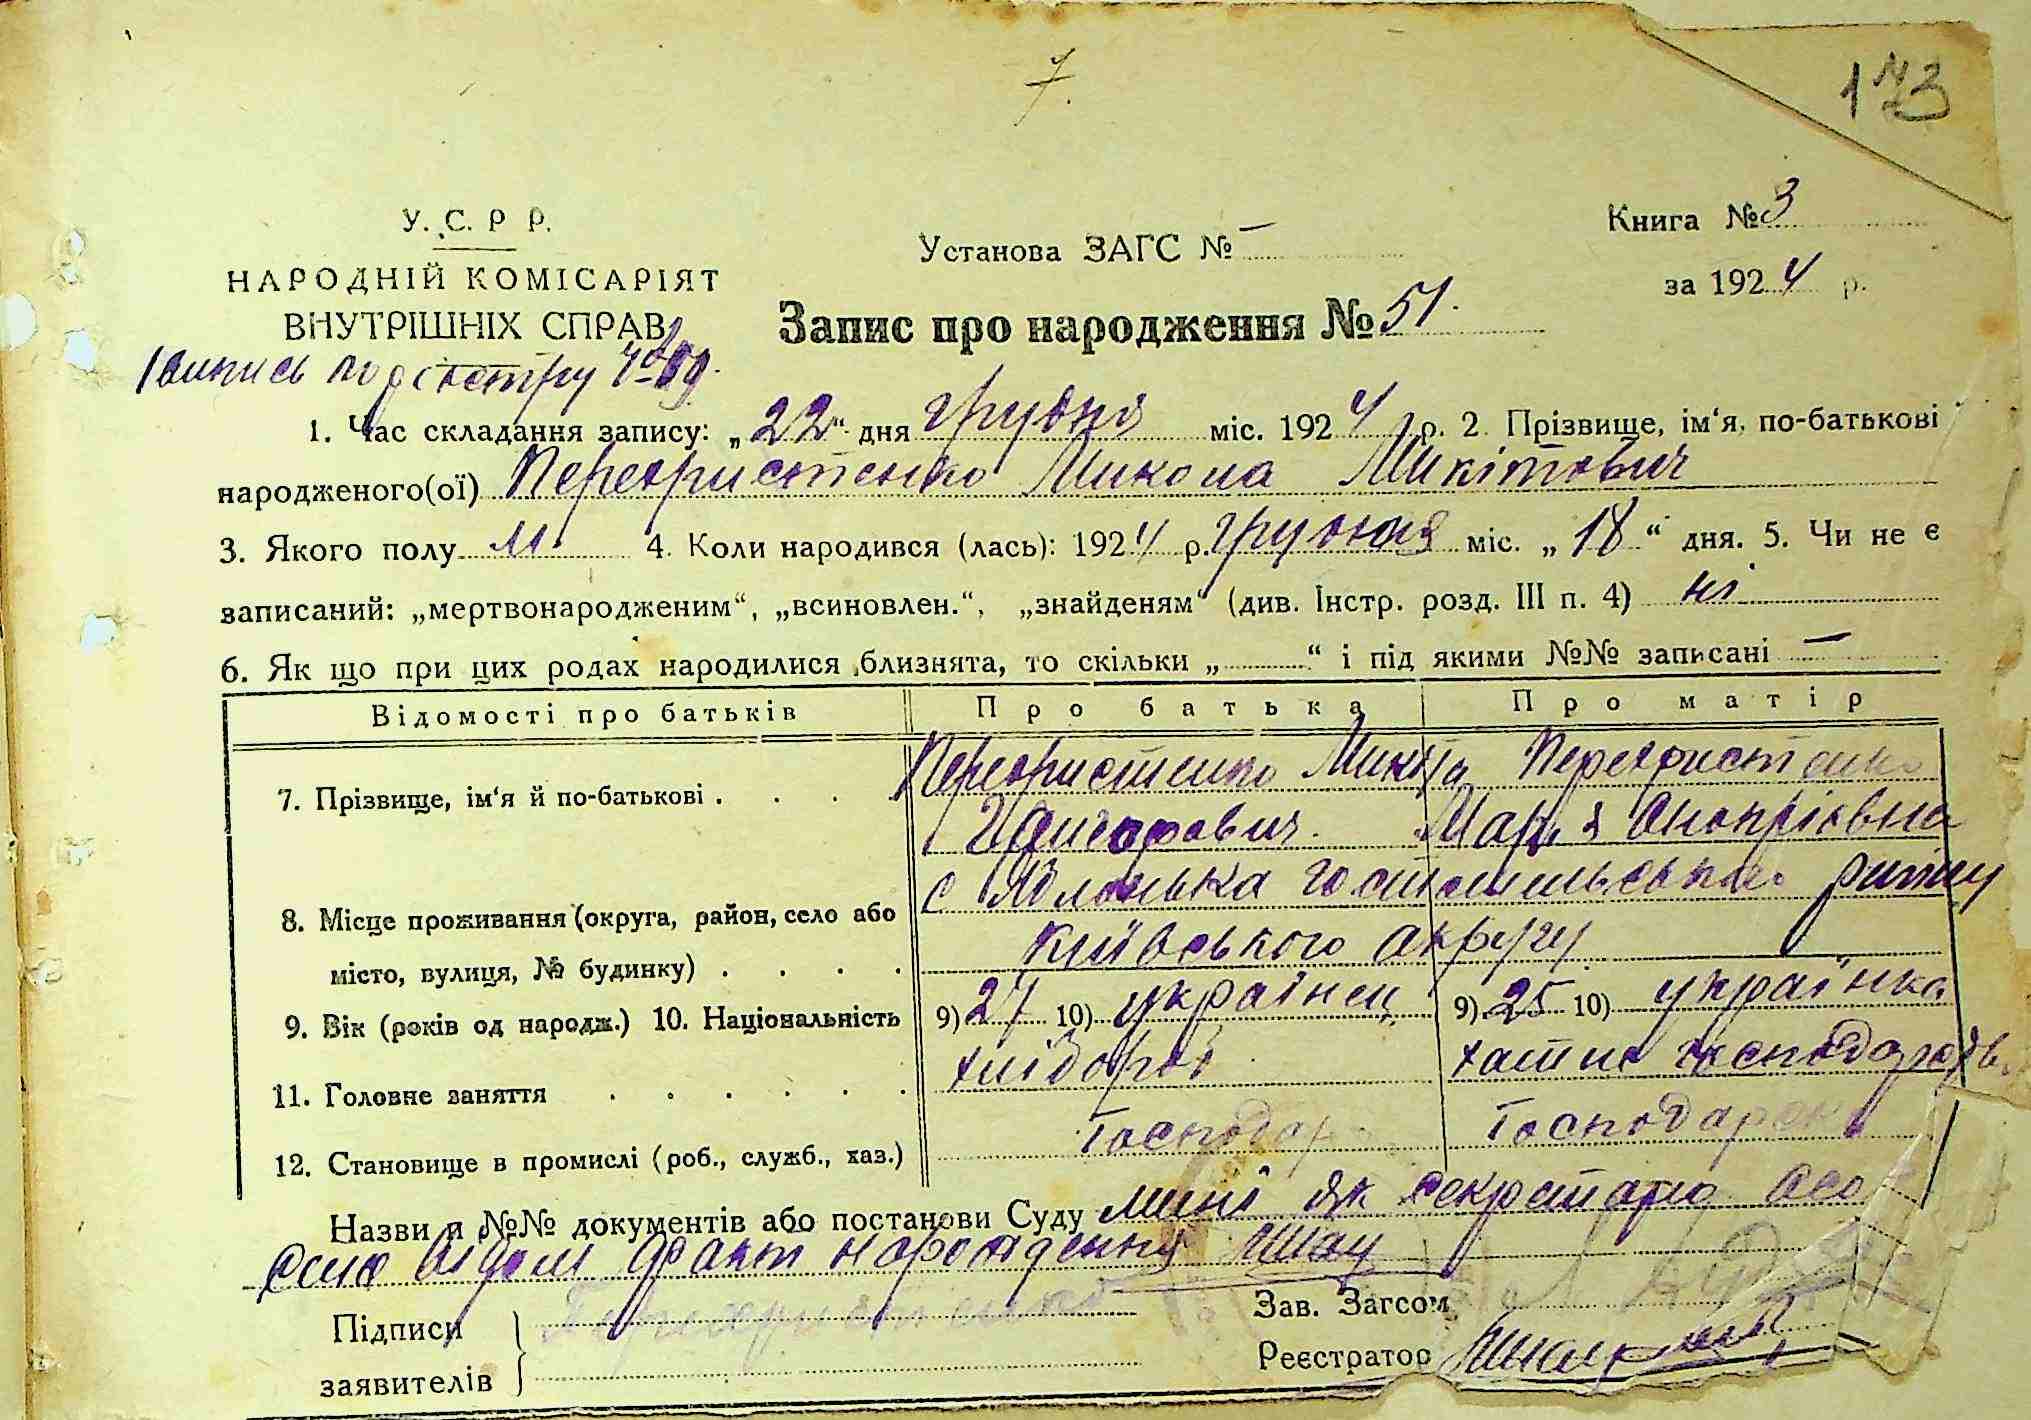 7.
173
У. С. Р Р.
НАРОДНІЙ КОМІСАРІЯТ
ВНУТРІШНІХ СПРАВ
Установа ЗАГС № —
Книга № 3
за 1924 р.
Запис про народження № 51.
1. Час складання запису: „22“ дня грудня міс. 1924 р. 2. Прізвище, ім‘я, по-батькові
народженого(ої) Перехристенко Микола Микітович
3. Якого полу м. 4. Коли народився (лась): 1924 р. грудня міс. „18“ дня. 5. Чи не є
записаний: „мертвонародженим“, „всиновлен.“, „знайденям“ (див. Інстр. розд. III п. 4) ні
6. Як що при цих родах народилися близнята, то скільки „ “ і під якими №№ записані —
Відомості про батьків Про батька Про матір
7. Прізвище, ім‘я й по-батькові . . . . Перехристенко Микита Перехристенко
Марія Онопріївна
8. Місце проживання (округа, район, село або с Яблонька Гостомильського району
місто, вулиця, № будинку) . . . . Київського округу
9. Вік (років од народж.) 10. Національність 9) 27 10) українец 9) 25 10) українка
11. Головне заняття . . . . . . хлібороб хатне господарств.
12. Становище в промислі (роб., служб., хаз.) Господар Господарка
Назви й №№ документів або постанови Суду мині як секретарю
відом факт народження
Підписи Перехристенко Зав. Загсом
заявителів Реєстратор